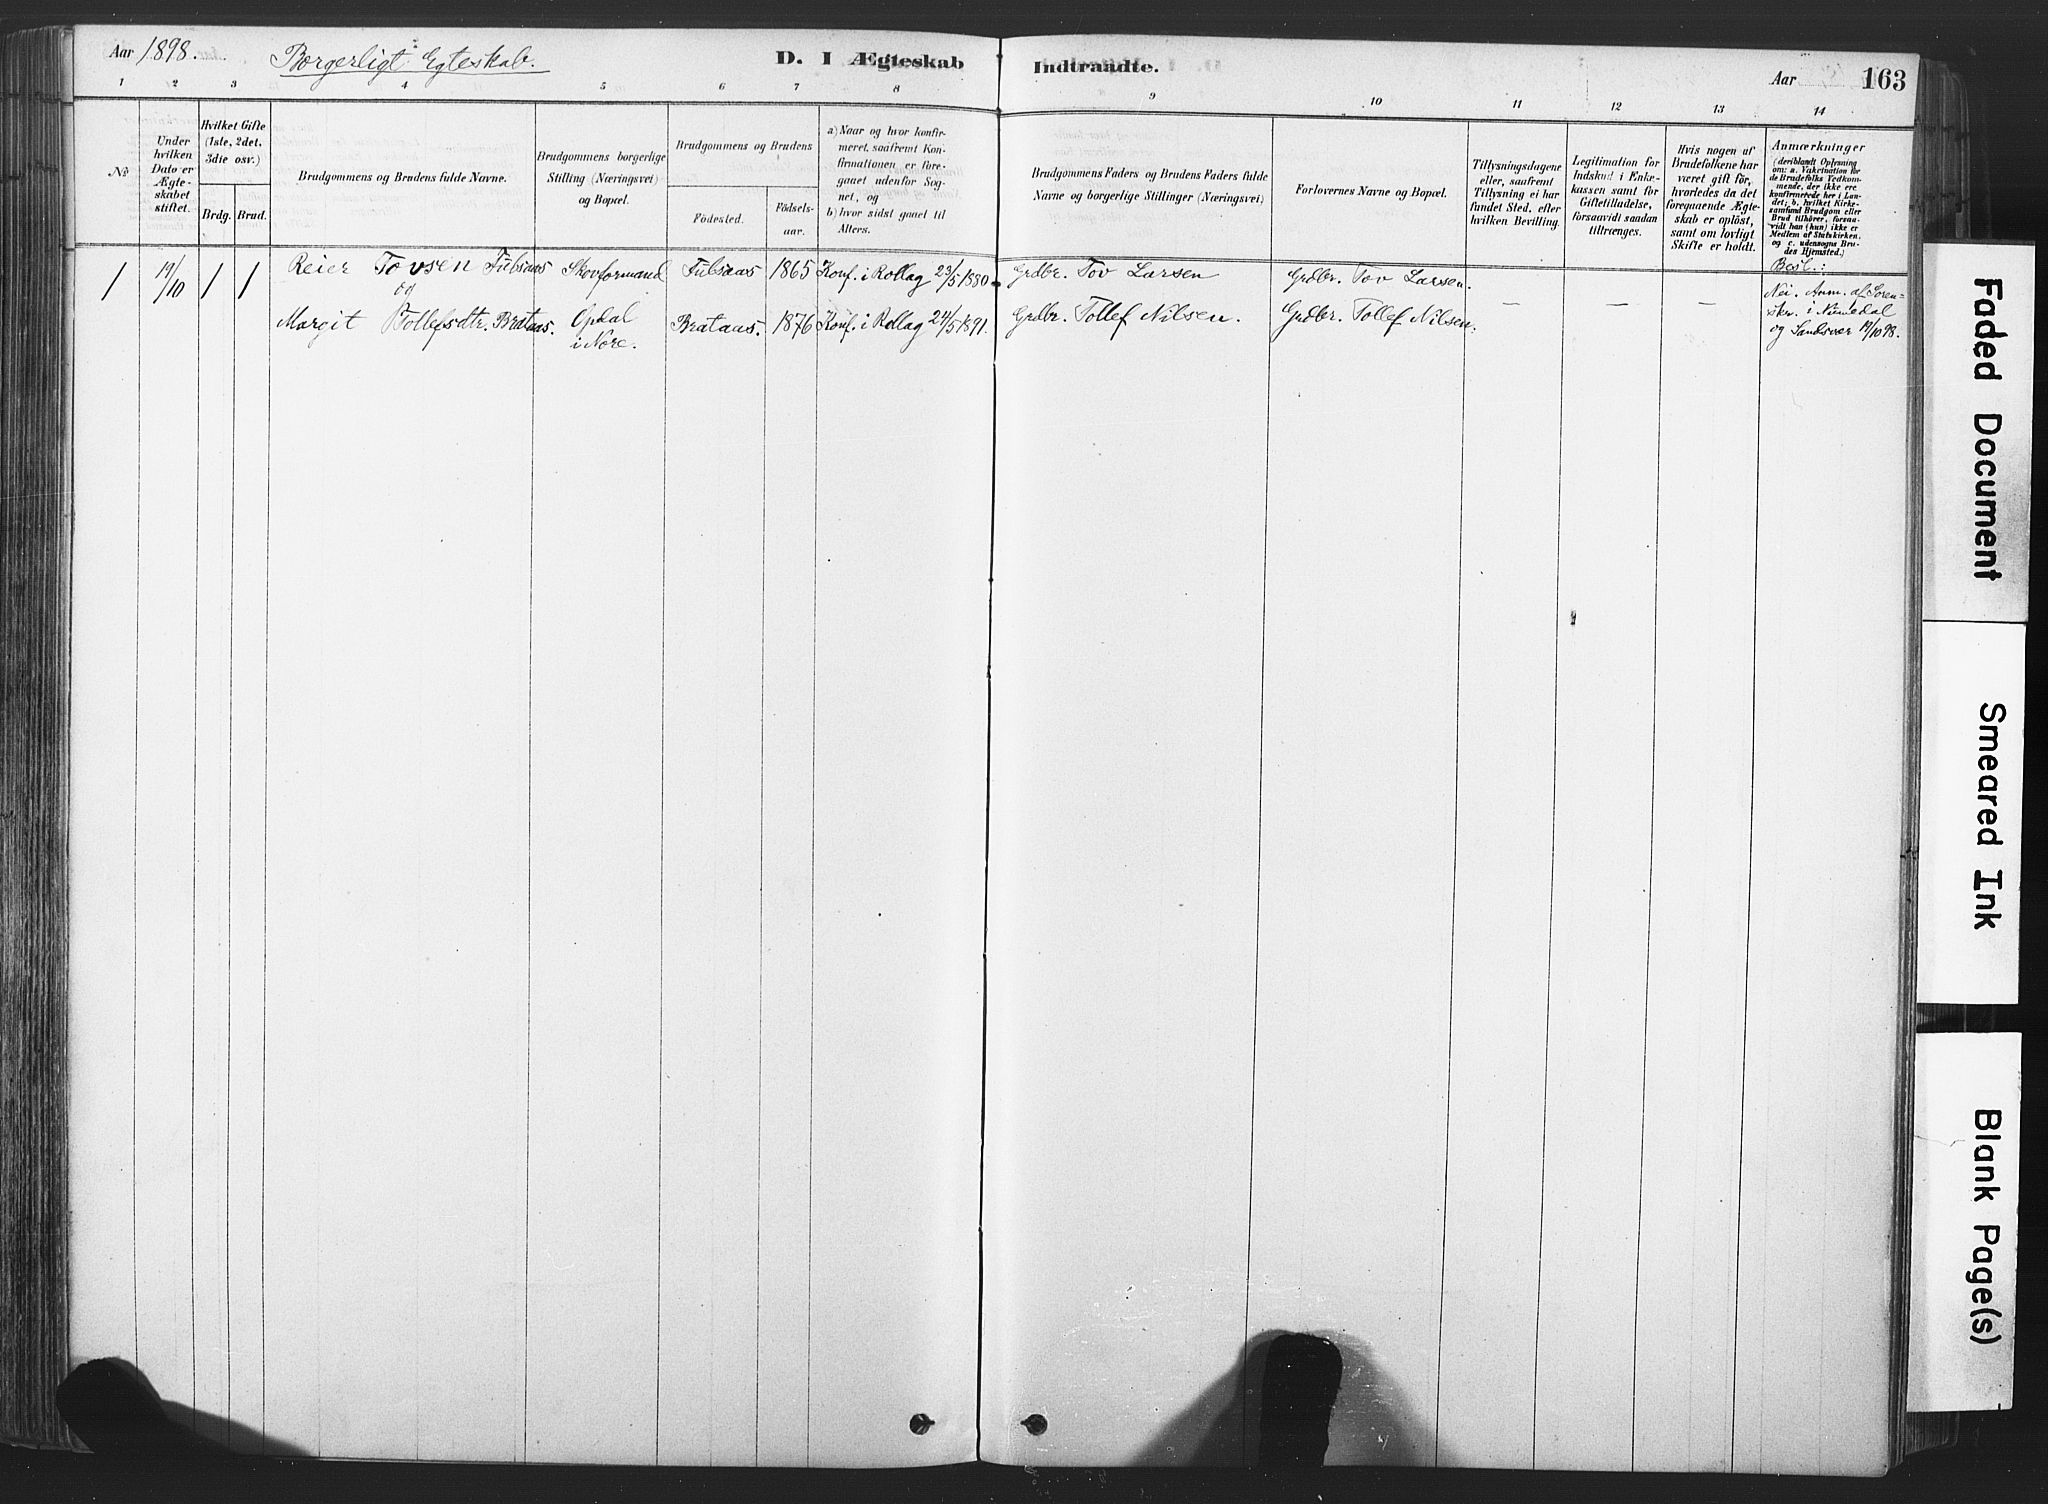 Aar 1898. Borgerligt Egteskab. D. I Ægteskab Indtraadte. Aar 163
1 2 3 4 5 6 7 8 9 10 11 12 13 14
No
Under hvilken Dato er Ægteskabet stiftet.
Hvilket Gifte (1ste, 2det, 3die osv.)
Brdg. Brud.
Brudgommens og Brudens fulde Navne.
Brudgommens borgerlige Stilling (Næringsvei) og Bopæl.
Brudgommens og Brudens
Födested. Födsels-aar.
a) Naar og hvor konfirmeret, saafremt Konfirmationen er foregaaet udenfor Sognet, og
b) hvor sidst gaaet til Alters.
Brudgommens Faders og Brudens Faders fulde Navne og borgerlige Stillinger (Næringsvei)
Forlovernes Navne og Bopæl.
Tillysningsdagene eller, saafremt Tillysning ei har fundet Sted, efter hvilken Bevilling.
Legitimation for Indskud i Enkekassen samt for Giftetilladelse, forsaavidt saadan tiltrænges.
Hvis nogen af Brudefolkene har været gift för, hvorledes da det foregaaende Ægteskab er oplöst, samt om lovligt Skifte er holdt.
Anmærkninger (deriblandt Oplysning om: a. Vakcination for de Brudefolks Vedkommende, der ikke ere konfirmerede her i Landet; b. hvilket Kirkesamfund Brudgom eller Brud tilhörer, forsaavidt han (hun) ikke er Medlem af Statskirken, og c. udensogns Brudes Hjemsted.)
Besl.:
1 19/10 1 1 Reier Tovsen Fulsaas Skovformand Fulsaas 1865 Konf. i Rollag 23/5 1880. Grdbr. Tov Larsen Grdbr. Tov Larsen.
og
Margit Tollefsdtr. Brataas. Opdal i Nore. Brataas. 1876 Konf. i Rollag 24/5 1891. Grdbr. Tollef Nilsen. Grdbr. Tollef Nilsen. — — —
Nei. Anm. af Soren-
skr. i Numedal
og Sandsvær 19/10 98.
Faded Document
Smeared Ink
Blank Page(s)